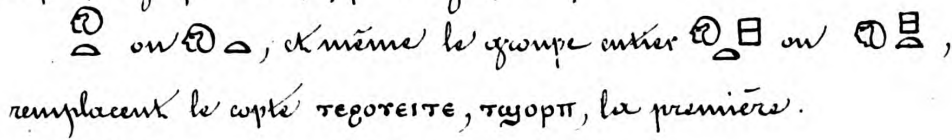 𓁶𓏏 ou 𓁶𓏏, et même le groupe entier 𓁶𓏏𓊪 ou 𓁶𓊪𓏏,
remplacent le copte ⲧⲉϩⲟⲩⲉⲓⲧⲉ, ⲧϣⲟⲣⲡ, la première.